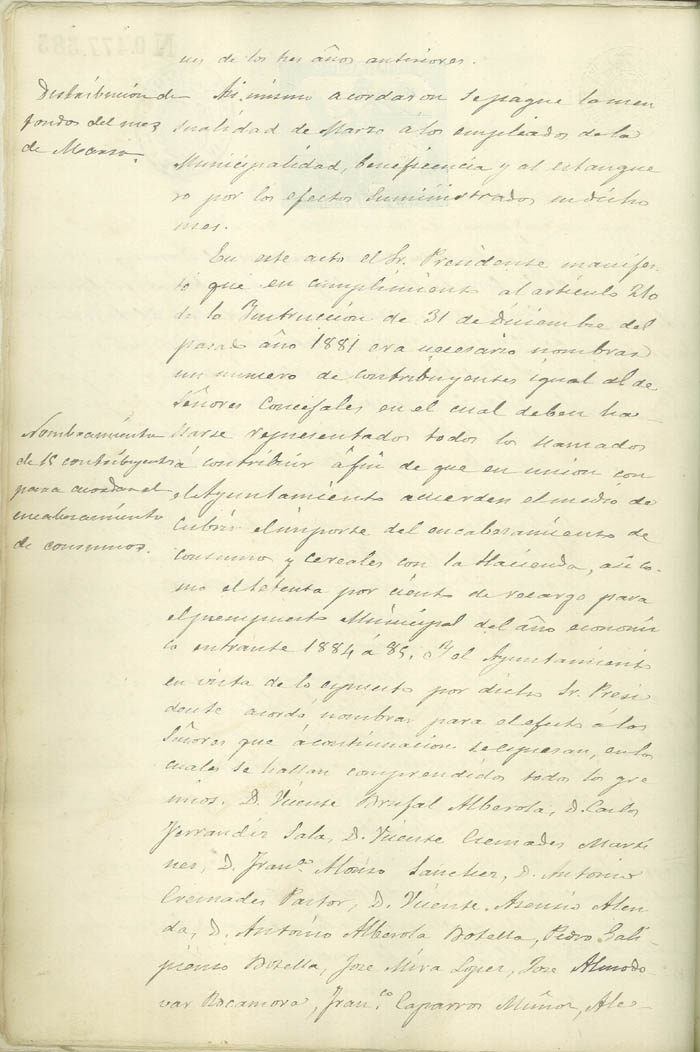 nes de los tres años anteriores.
Distribución de
fondos del mes
de Marzo.
Asi mismo acordaron se pague la men
sualidad de Marzo á los empleados de la
Municipalidad, beneficencia y al estanque
ro por los efectos suministrados en dicho
mes.
En este acto el Sr. Presidente manifes-
tó que en cumplimiento al artículo 210
de la Instrucción de 31 de Diciembre del
pasado año 1881 era necesario nombrar
un numero de contribuyentes igual al de
Señores Concejales en el cual deben ha-
Nombramiento
de 15 contribuyentes
para acordar el
encabezamiento
de consumos.
llarse representados todos los llamados
á contribuir á fin de que en union con
el Ayuntamiento acuerden el medio de
cubrir el importe del encabesamiento de
consumo y cereales con la Hacienda, asi co-
mo el setenta por ciento de recargo para
el presupuesto Municipal del año económi
co entrante 1884 á 85. Y el Ayuntamiento
en vista de lo espuesto por dicho Sr. Presi
dente acordó nombrar para el efecto a los
Señores que á continuacion se espresan, en los
cuales se hallan comprendidos todos los gre
mios. D. Vicente Brufal Alberola, D. Carlos
Ferrandiz Sala, D. Vicente Cremades Marti
nes, D. Fran.co Alonso Sanchez, D. Antonio
Cremades Pastor, D. Vicente Asensio Alen
da, D. Antonio Alberola Botella, Pedro Gali
piense Botella, Jose Mira Lopez, Jose Almodo
var Rocamora, Fran.co Caparros Muñoz, Ale-